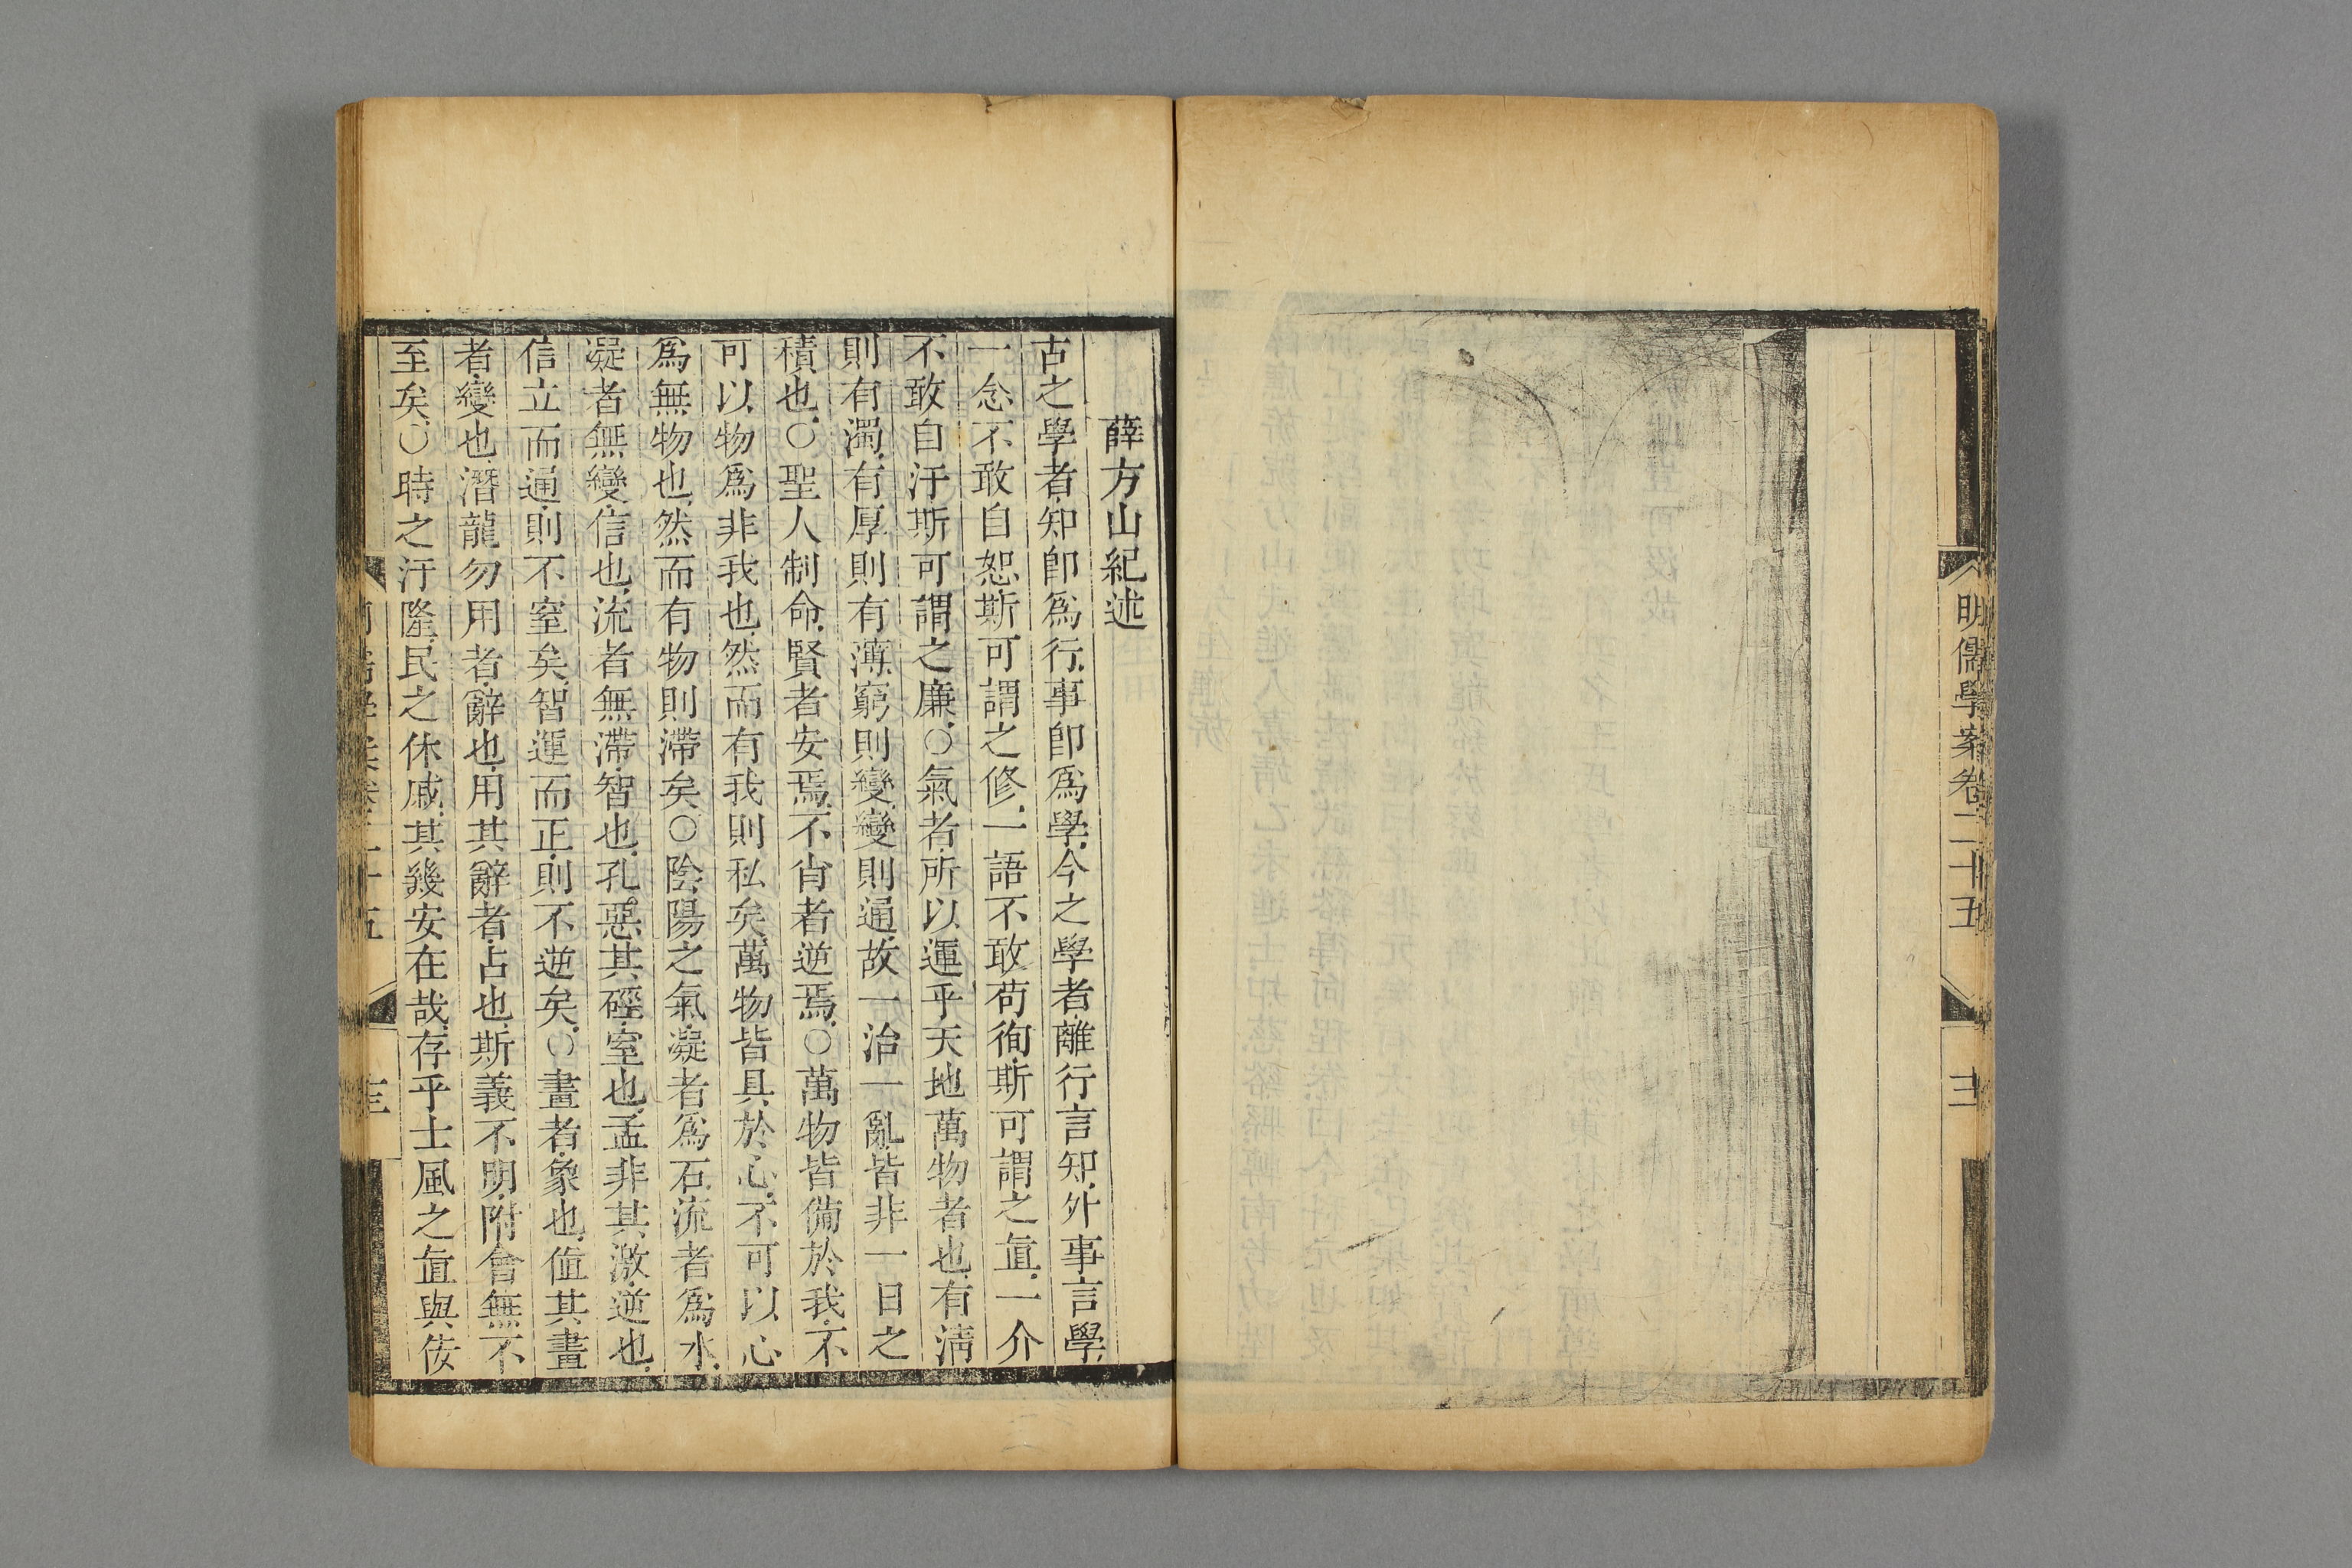 明儒學案卷二十五
薛方山紀述
古之學者知卽爲行事卽爲學今之學者離行言知外事言學
一念不敢自恕斯可謂之修一語不敢苟徇斯可謂之直一介
不敢自汙斯可謂之廉○氣者所以運乎天地萬物者也有淸
則有濁有厚則有薄窮則變變則通故一治一亂皆非一日之
積也○聖人制命賢者安焉不肖者逆焉○萬物皆備於我不
可以物爲非我也然而有我則私矣萬物皆具於心不可以心
爲無物也然而有物則滯矣○陰陽之氣凝者爲石流者爲水
凝者無變信也流者無滯智也孔惡其硜窒也孟非其激逆也
信立而通則不窒矣智運而正則不逆矣○畫者象也值其畫
者變也潛龍勿用者辭也用其辭者占也斯義不明附會無不
至矣○時之汙隆民之休戚其幾安在哉存乎士風之直與佞